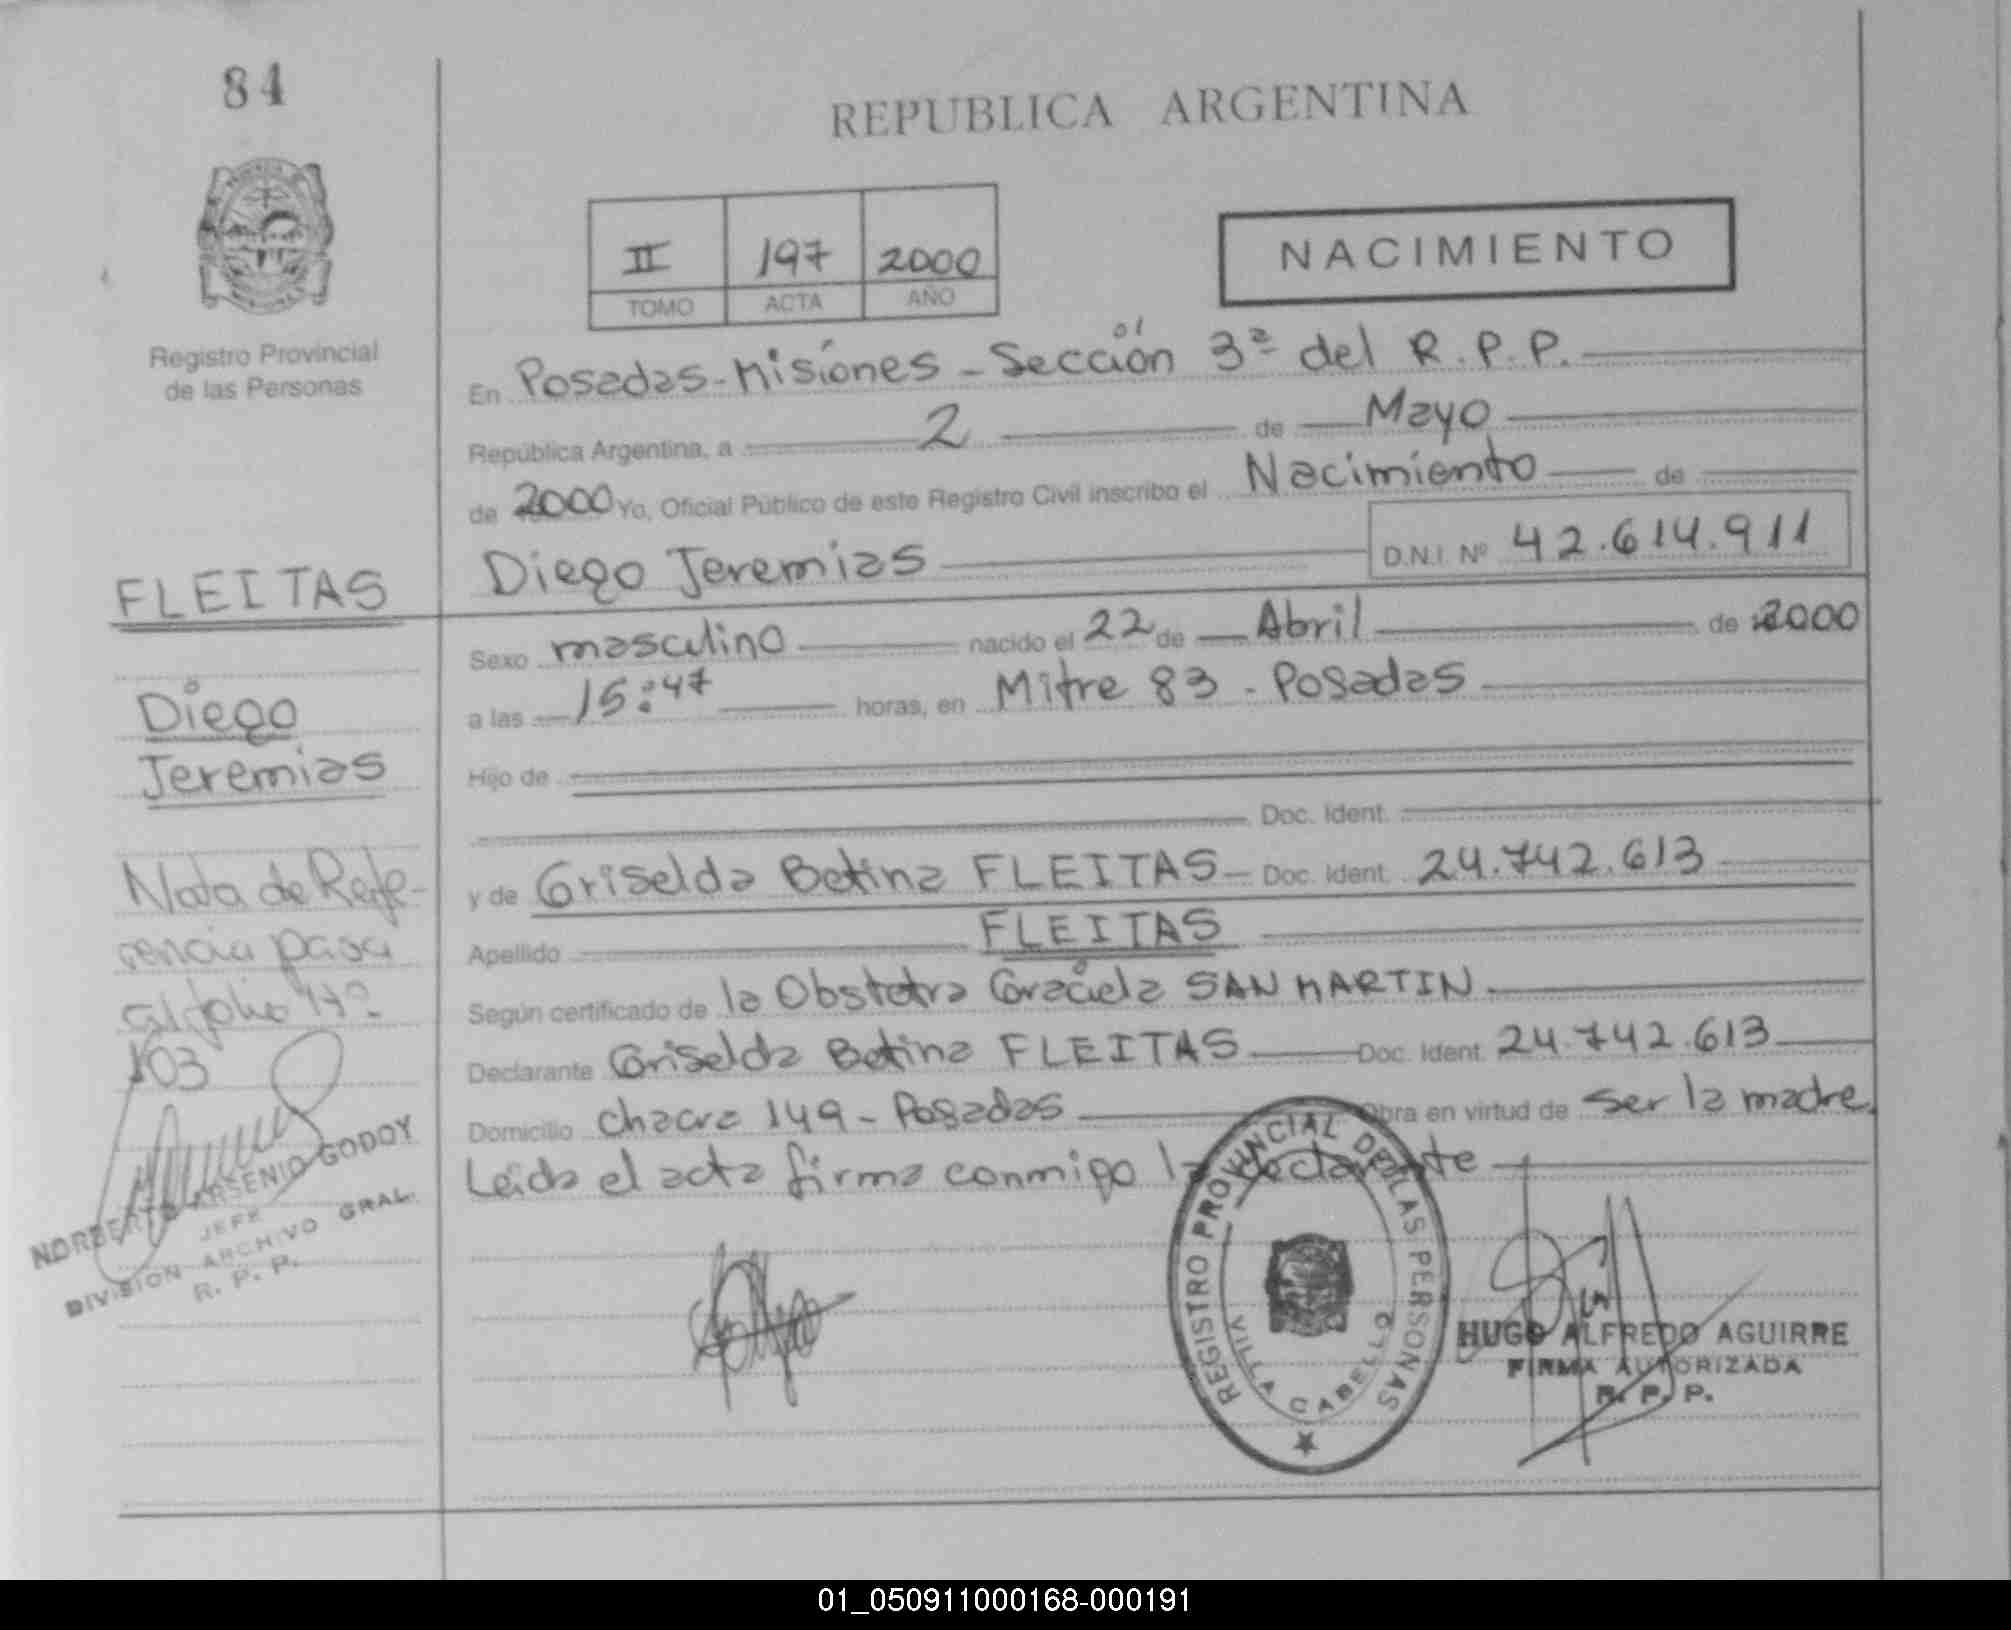 84
REPUBLICA ARGENTINA
II 197 2000
TOMO ACTA AÑO
NACIMIENTO
Registro Provincial
de las Personas
En Posadas-Misiones - Sección 3ª del R.P.P.
República Argentina, a 2 de Mayo
de 2000 Yo, Oficial Público de este Registro Civil inscribo el Nacimiento de
Diego Jeremias D.N.I. Nº 42.614.911
FLEITAS
Diego
Jeremias
Sexo masculino nacido el 22 de Abril de 2000
a las 15:47 horas, en Mitre 83 - Posadas
Hijo de
Doc. Ident.
y de Griselda Betina FLEITAS - Doc. Ident. 24.742.613
Apellido FLEITAS
Según certificado de la Obstetra Graciela SAN MARTIN
Declarante Griselda Betina FLEITAS Doc. Ident. 24.742.613
Domicilio chacra 149 - Posadas Obra en virtud de ser la madre
Leida el acta firma conmigo la declarante
Nota de Refe-
rencia pasa
al folio Nº
103
NORBERTO ARSENIO GODOY
JEFE
DIVISION ARCHIVO GRAL.
R. P. P.
REGISTRO PROVINCIAL DE LAS PERSONAS
VILLA CABELLO
HUGO ALFREDO AGUIRRE
FIRMA AUTORIZADA
R. P. P.
01_050911000168-000191